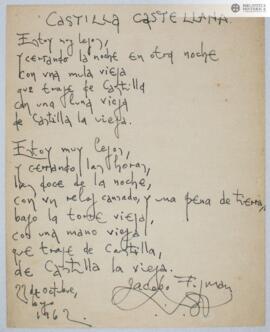 BIBLIOTECA
HISTÓRICA
CASTILLA CASTELLANA.
Estoy muy lejos,
y cerrando la noche en otra noche
con una mula vieja
que traje de Castilla
con una luna vieja
de Castilla la vieja.
Estoy muy lejos,
y cerrando las horas,
las doce de la noche,
con un reloj cansado, y una pena de tierra,
bajo la torre vieja,
con una mano vieja
que traje de Castilla,
de Castilla la vieja.
Jacobo Fijman
23 de octubre,
1962.